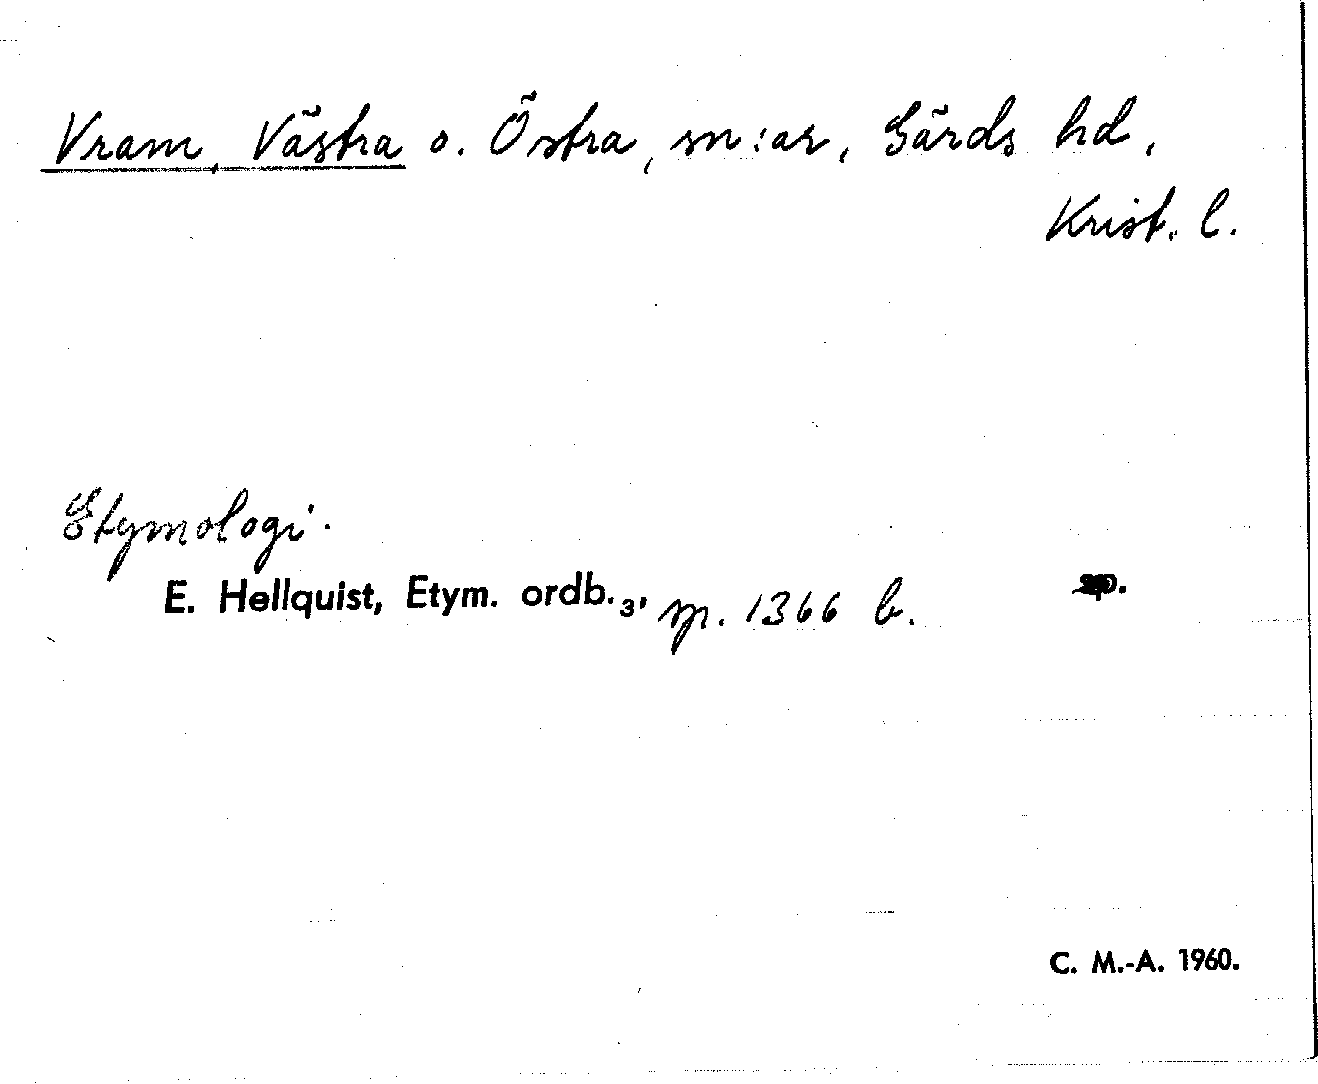 Vram, Västra o. Östra, sn:ar, Gärds hd,
Krist. l.
Etymologi.
E. Hellquist, Etym. ordb.₃, sp. 1366 b.
C. M.-A. 1960.